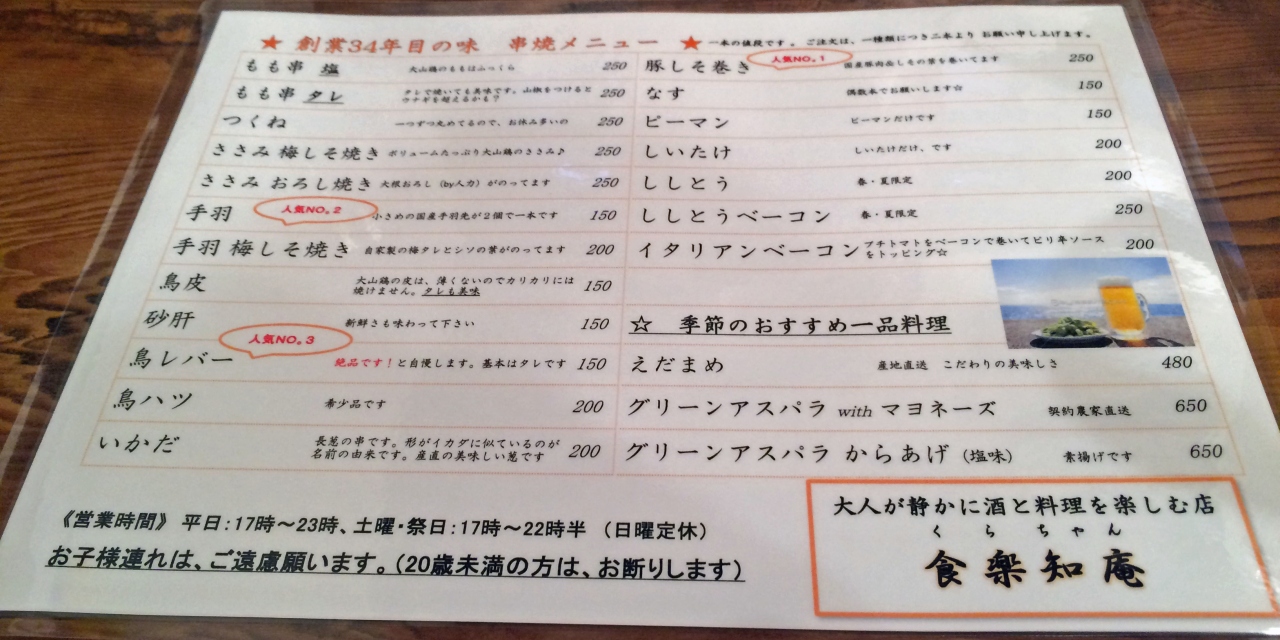 ★ 創業34年目の味 串焼メニュー ★ 一本の値段です。ご注文は、一種類につき二本より お願い申し上げます。
もも串 塩 大山鶏のももはふっくら 250
もも串 タレ タレで焼いても美味です。山椒をつけると ウナギを超えるかも? 250
つくね 一つずつ丸めてるので、お休み多いの 250
ささみ 梅しそ焼き ボリュームたっぷり大山鶏のささみ♪ 250
ささみ おろし焼き 大根おろし(by人力)がのってます 250
手羽 人気NO。2 小さめの国産手羽先が2個で一本です 150
手羽 梅しそ焼き 自家製の梅タレとシソの葉がのってます 200
鳥皮 大山鶏の皮は、薄くないのでカリカリには 焼けません。タレも美味 150
砂肝 新鮮さも味わって下さい 150
鳥レバー 人気NO。3 絶品です!と自慢します。基本はタレです 150
鳥ハツ 希少品です 200
いかだ 長葱の串です。形がイカダに似ているのが 名前の由来です。産直の美味しい葱です 200
豚しそ巻き 人気NO。1 国産豚肉丘しその葉を巻いてます 250
なす 偶数本でお願いします☆ 150
ピーマン ピーマンだけです 150
しいたけ しいたけだけ、です 200
ししとう 春・夏限定 200
ししとうベーコン 春・夏限定 250
イタリアンベーコン プチトマトをベーコンで巻いてピリ辛ソース をトッピング☆ 200
☆ 季節のおすすめ一品料理
えだまめ 産地直送 こだわりの美味しさ 480
グリーンアスパラ with マヨネーズ 契約農家直送 650
グリーンアスパラ からあげ (塩味) 素揚げです 650
《営業時間》 平日:17時~23時、土曜・祭日:17時~22時半 (日曜定休)
お子様連れは、ご遠慮願います。(20歳未満の方は、お断りします)
大人が静かに酒と料理を楽しむ店
くらちゃん
食楽知庵